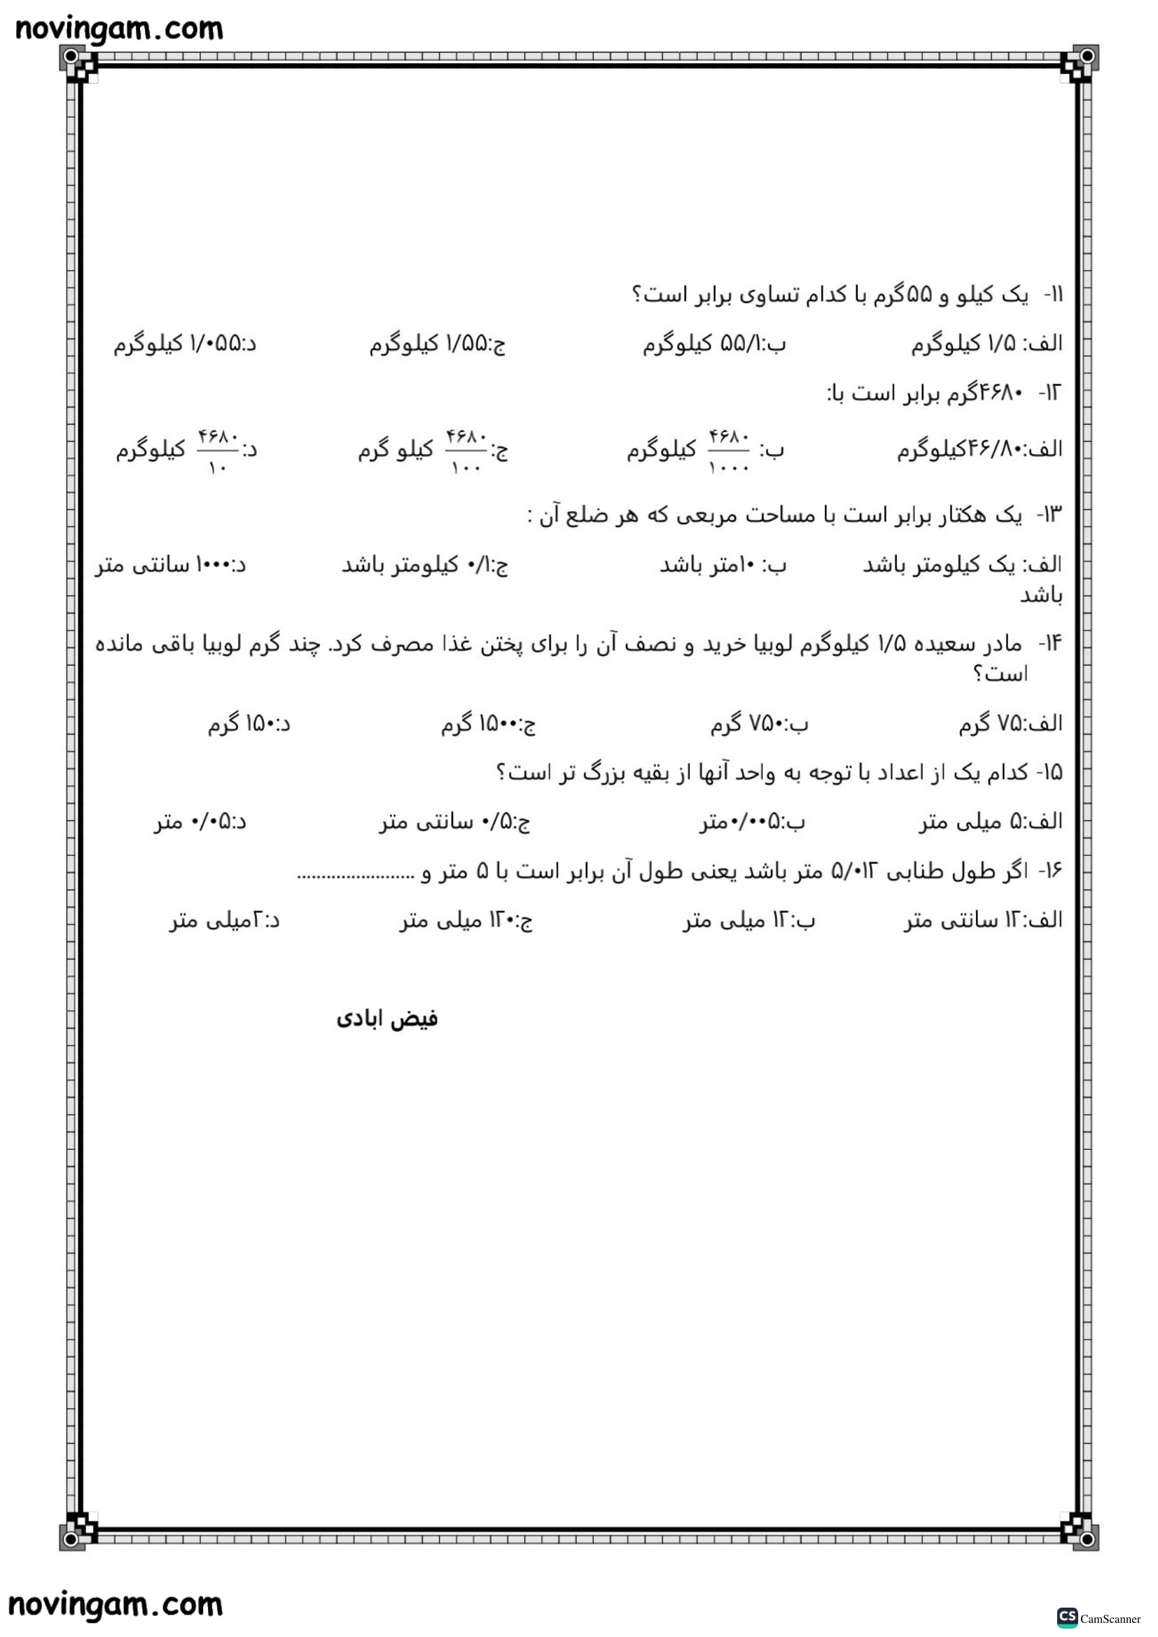 novingam.com
۱۱- یک کیلو و ۵۵گرم با کدام تساوی برابر است؟
الف: ۱/۵ کیلوگرم ب:۵۵/۱ کیلوگرم ج:۱/۵۵ کیلوگرم د:۱/۰۵۵ کیلوگرم
۱۲- ۴۶۸۰گرم برابر است با:
الف:۴۶/۸۰کیلوگرم ب: ۴۶۸۰/۱۰۰۰ کیلوگرم ج: ۴۶۸۰/۱۰۰ کیلو گرم د: ۴۶۸۰/۱۰ کیلوگرم
۱۳- یک هکتار برابر است با مساحت مربعی که هر ضلع آن :
الف: یک کیلومتر باشد ب: ۱۰متر باشد ج:۰/۱ کیلومتر باشد د:۱۰۰۰ سانتی متر
باشد
۱۴- مادر سعیده ۱/۵ کیلوگرم لوبیا خرید و نصف آن را برای پختن غذا مصرف کرد. چند گرم لوبیا باقی مانده
است؟
الف:۷۵ گرم ب:۷۵۰ گرم ج:۱۵۰۰ گرم د:۱۵۰ گرم
۱۵- کدام یک از اعداد با توجه به واحد آنها از بقیه بزرگ تر است؟
الف:۵ میلی متر ب:۰/۰۰۵متر ج:۰/۵ سانتی متر د:۰/۰۵ متر
۱۶- اگر طول طنابی ۵/۰۱۲ متر باشد یعنی طول آن برابر است با ۵ متر و ........................
الف:۱۲ سانتی متر ب:۱۲ میلی متر ج:۱۲۰ میلی متر د:۲میلی متر
فیض ابادی
novingam.com
CS CamScanner